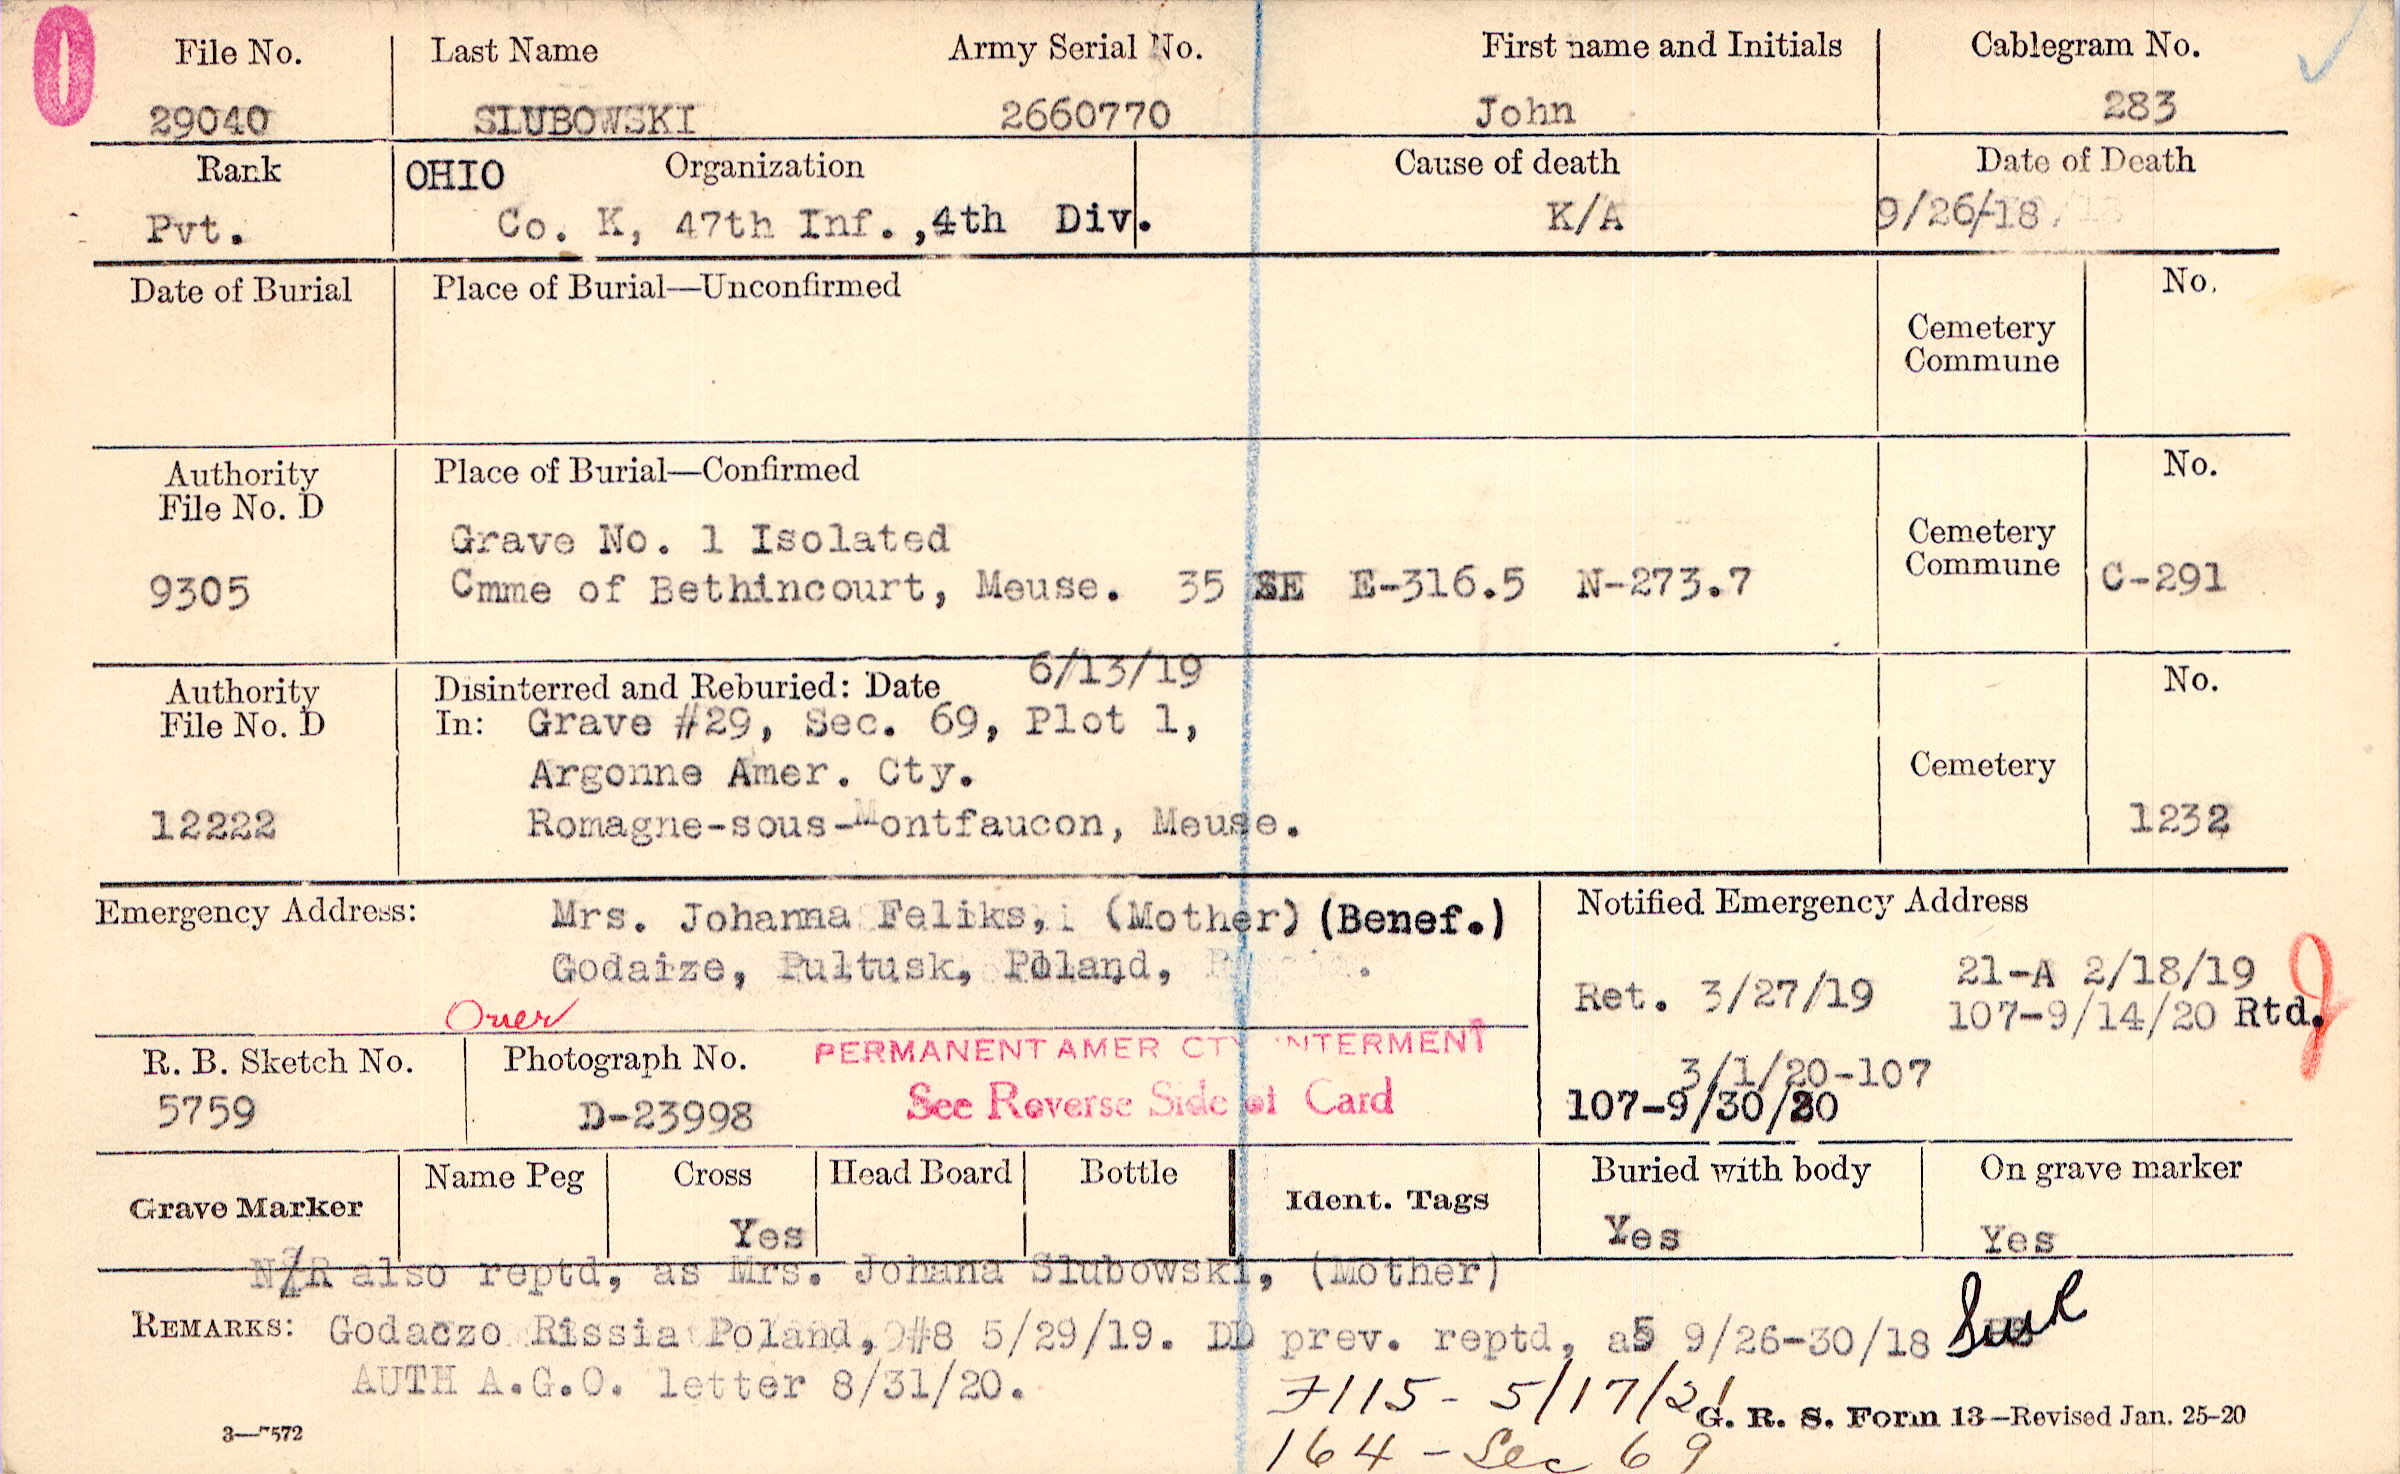 File No. Last Name Army Serial No. First name and Initials Cablegram No.
29040 SLUBOWSKI 2660770 John 283
Rank OHIO Organization Cause of death Date of Death
Pvt. Co. K, 47th Inf.,4th Div. K/A 9/26/18
Date of Burial Place of Burial—Unconfirmed No.
Cemetery
Commune
Authority Place of Burial—Confirmed No.
File No. D
Grave No. 1 Isolated Cemetery
9305 Cmme of Bethincourt, Meuse. 35 SE E-316.5 N-273.7 Commune C-291
Authority Disinterred and Reburied: Date 6/13/19 No.
File No. D In: Grave #29, Sec. 69, Plot 1,
Argonne Amer. Cty. Cemetery
12222 Romagne-sous-Montfaucon, Meuse. 1232
Emergency Address: Mrs. Johanna Feliks, (Mother) (Benef.) Notified Emergency Address
Godaize, Pultusk, Poland,
21-A 2/18/19
Ret. 3/27/19 107-9/14/20 Rtd.
Over
R. B. Sketch No. Photograph No. PERMANENT AMER CTY INTERMENT
3/1/20-107
5759 D-23998 See Reverse Side of Card 107-9/30/20
Grave Marker Name Peg Cross Head Board Bottle Ident. Tags Buried with body On grave marker
Yes Yes Yes
N/R also reptd, as Mrs. Johana Slubowski, (Mother)
REMARKS: Godaczo Rissia Poland, #8 5/29/19. DD prev. reptd, as 9/26-30/18
AUTH A.G.O. letter 8/31/20.
7115 - 5/17/21
G. R. S. Form 13—Revised Jan. 25-20
3—7572
164 - Sec 69